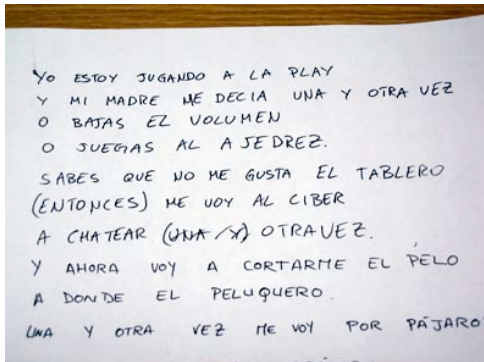 YO ESTOY JUGANDO A LA PLAY
Y MI MADRE ME DECIA UNA Y OTRA VEZ
O BAJAS EL VOLUMEN
O JUEGAS AL AJEDREZ.
SABES QUE NO ME GUSTA EL TABLERO
(ENTONCES) ME VOY AL CIBER
A CHATEAR (UNA Y) OTRA VEZ.
Y AHORA VOY A CORTARME EL PELO
A DONDE EL PELUQUERO.
UNA Y OTRA VEZ ME VOY POR PÁJARO